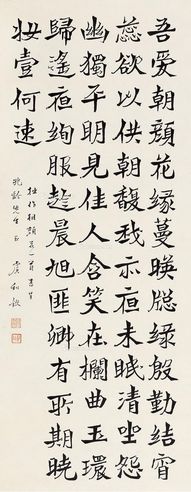 吾爱朝顔花緣蔓暎牕緑殷勤結宵
蕊欲以供朝馥我示夜未眠清坐怨
幽獨平明見佳人含笑在欄曲玉環
歸遥夜絢服趂晨旭匪卿有所期曉
妝壹何速